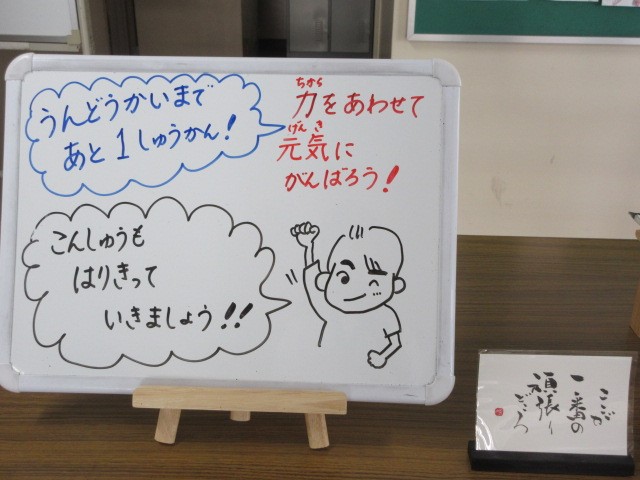 うんどうかいまで
あと1しゅうかん!
力をあわせて
ちから
元気に
げんき
がんばろう!
こんしゅうも
はりきって
いきましょう!!
ここが
一番の
頑張り
どころ